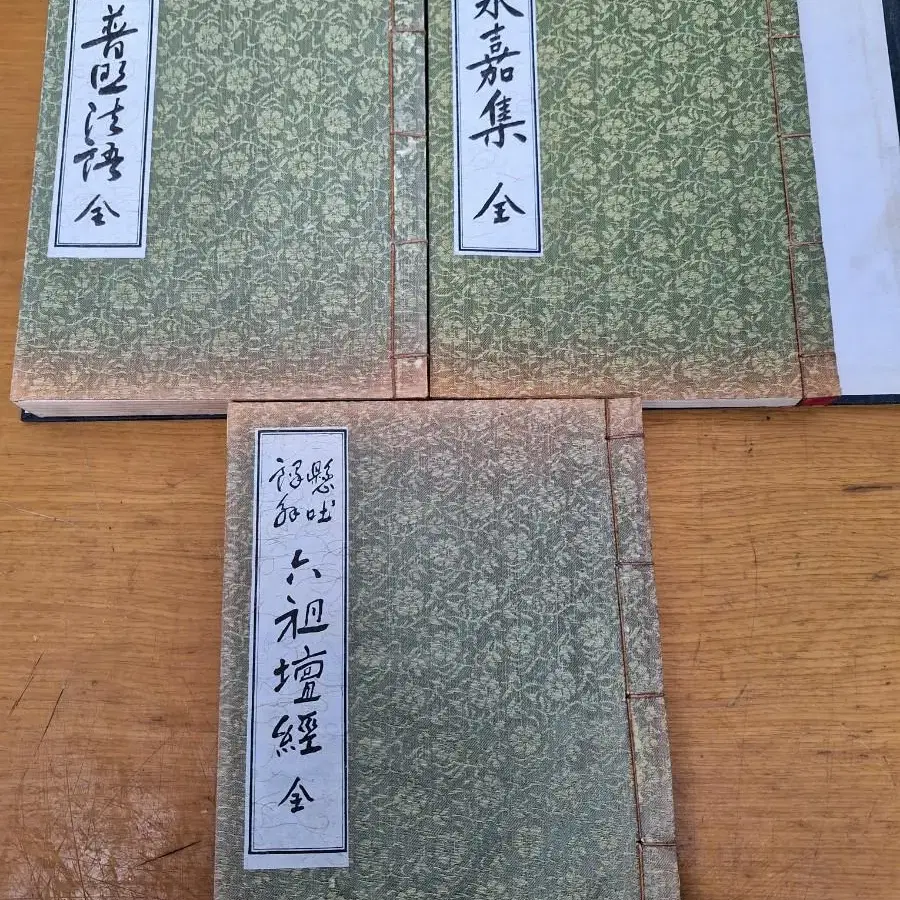 普照法語 全
永嘉集 全
懸吐
譯解
六祖壇經 全